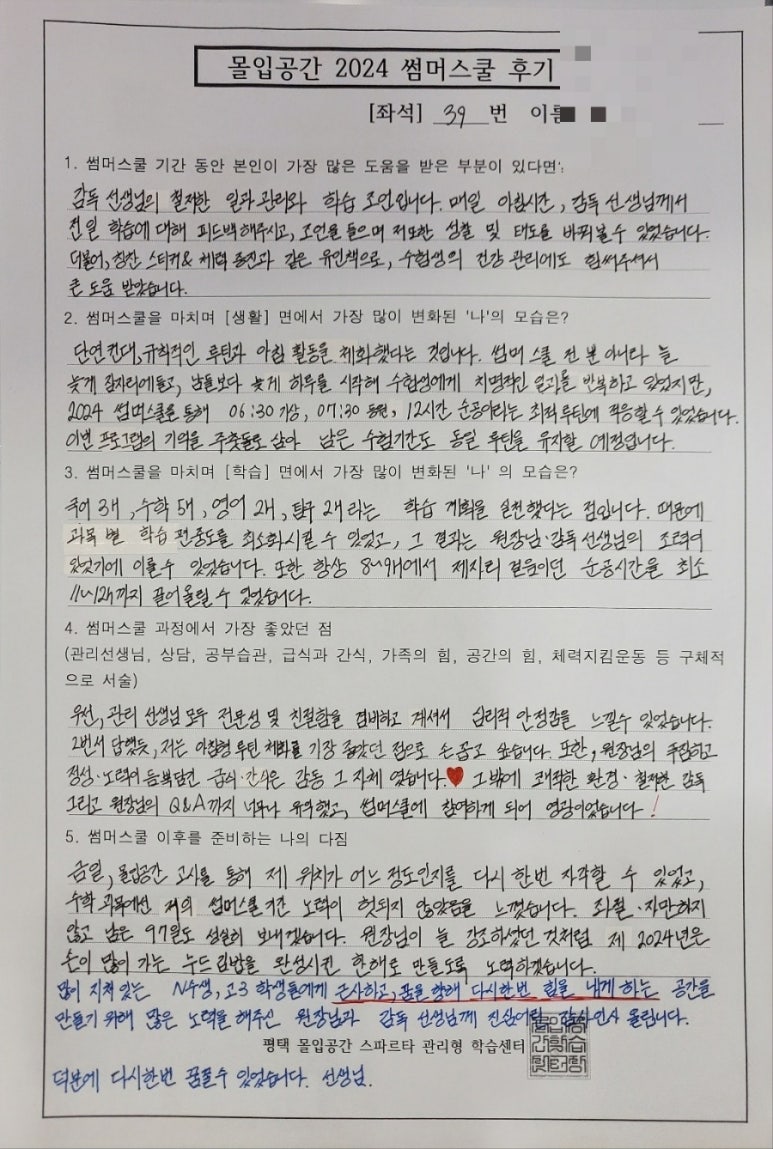 몰입공간 2024 썸머스쿨 후기
[좌석] 39 번 이름
1. 썸머스쿨 기간 동안 본인이 가장 많은 도움을 받은 부분이 있다면
감독 선생님의 철저한 일과 관리와 학습 조언입니다. 매일 아침시간, 감독 선생님께서
전일 학습에 대해 피드백해주시고, 조언을 들으며 제 또한 성찰 및 태도를 바꿔볼 수 있었습니다.
더불어, 칭찬 스티커 & 체력 증진과 같은 유인책으로, 수험생의 건강 관리에도 힘써주셔서
큰 도움 받았습니다.
2. 썸머스쿨을 마치며 [생활] 면에서 가장 많이 변화된 '나'의 모습은?
단연컨대, 규칙적인 루틴과 아침 활동을 체화했다는 것입니다. 썸머스쿨 전 뿐 아니라 늘
늦게 잠자리에 들고, 남들보다 늦게 하루를 시작해 수험생에게 치명적인 일과를 반복하고 있었지만,
2024 썸머스쿨을 통해 06:30 기상, 07:30 등원, 12시간 순공이라는 최적 루틴에 적응할 수 있었습니다.
이번 프로그램의 기억을 주춧돌로 삼아 남은 수험기간도 동일 루틴을 유지할 예정입니다.
3. 썸머스쿨을 마치며 [학습] 면에서 가장 많이 변화된 '나' 의 모습은?
국어 3h, 수학 5h, 영어 2h, 탐구 2h라는 학습 계획을 실천했다는 점입니다. 때문에
과목 별 학습 편중도를 최소화시킬 수 있었고, 그 결과는 원장님·감독 선생님의 조력이
있었기에 이룰 수 있었습니다. 또한 항상 8~9h에서 제자리 걸음이던 순공시간을 최소
11~12h까지 끌어올릴 수 있었습니다.
4. 썸머스쿨 과정에서 가장 좋았던 점
(관리선생님, 상담, 공부습관, 급식과 간식, 가족의 힘, 공간의 힘, 체력지킴운동 등 구체적
으로 서술)
우선, 관리 선생님 모두 전문성 및 친절함을 겸비하고 계셔서 심리적 안정감을 느낄 수 있었습니다.
2번서 답했듯, 저는 아침형 루틴 체화를 가장 좋았던 점으로 손꼽고 싶습니다. 또한, 원장님의 푸짐하고
정성·노력이 듬뿍담긴 급식·간식은 감동 그 자체 였습니다.♥ 그 밖에 쾌적한 환경·철저한 감독
그리고 원장님의 Q&A까지 너무나 유익했고, 썸머스쿨에 참여하게 되어 영광이었습니다!
5. 썸머스쿨 이후를 준비하는 나의 다짐
금일, 몰입공간 고사를 통해 제 위치가 어느 정도인지를 다시 한번 자각할 수 있었고,
수학 과목에선 저의 썸머스쿨 기간 노력이 헛되지 않았음을 느꼈습니다. 좌절·자만하지
않고 남은 97일도 성실히 보내겠습니다. 원장님이 늘 강조하셨던 것처럼 제 2024년은
손이 많이 가는 누드김밥을 완성시킨 한해로 만들도록 노력하겠습니다.
많이 지쳐 있는 N수생, 고3 학생들에게 근사하고, 꿈을 향해 다시한번 힘을 내게 하는 공간을
만들기 위해 많은 노력을 해주신 원장님과 감독 선생님께 진심어린 감사인사 올립니다.
평택 몰입공간 스파르타 관리형 학습센터
덕분에 다시한번 꿈꿀 수 있었습니다. 선생님.